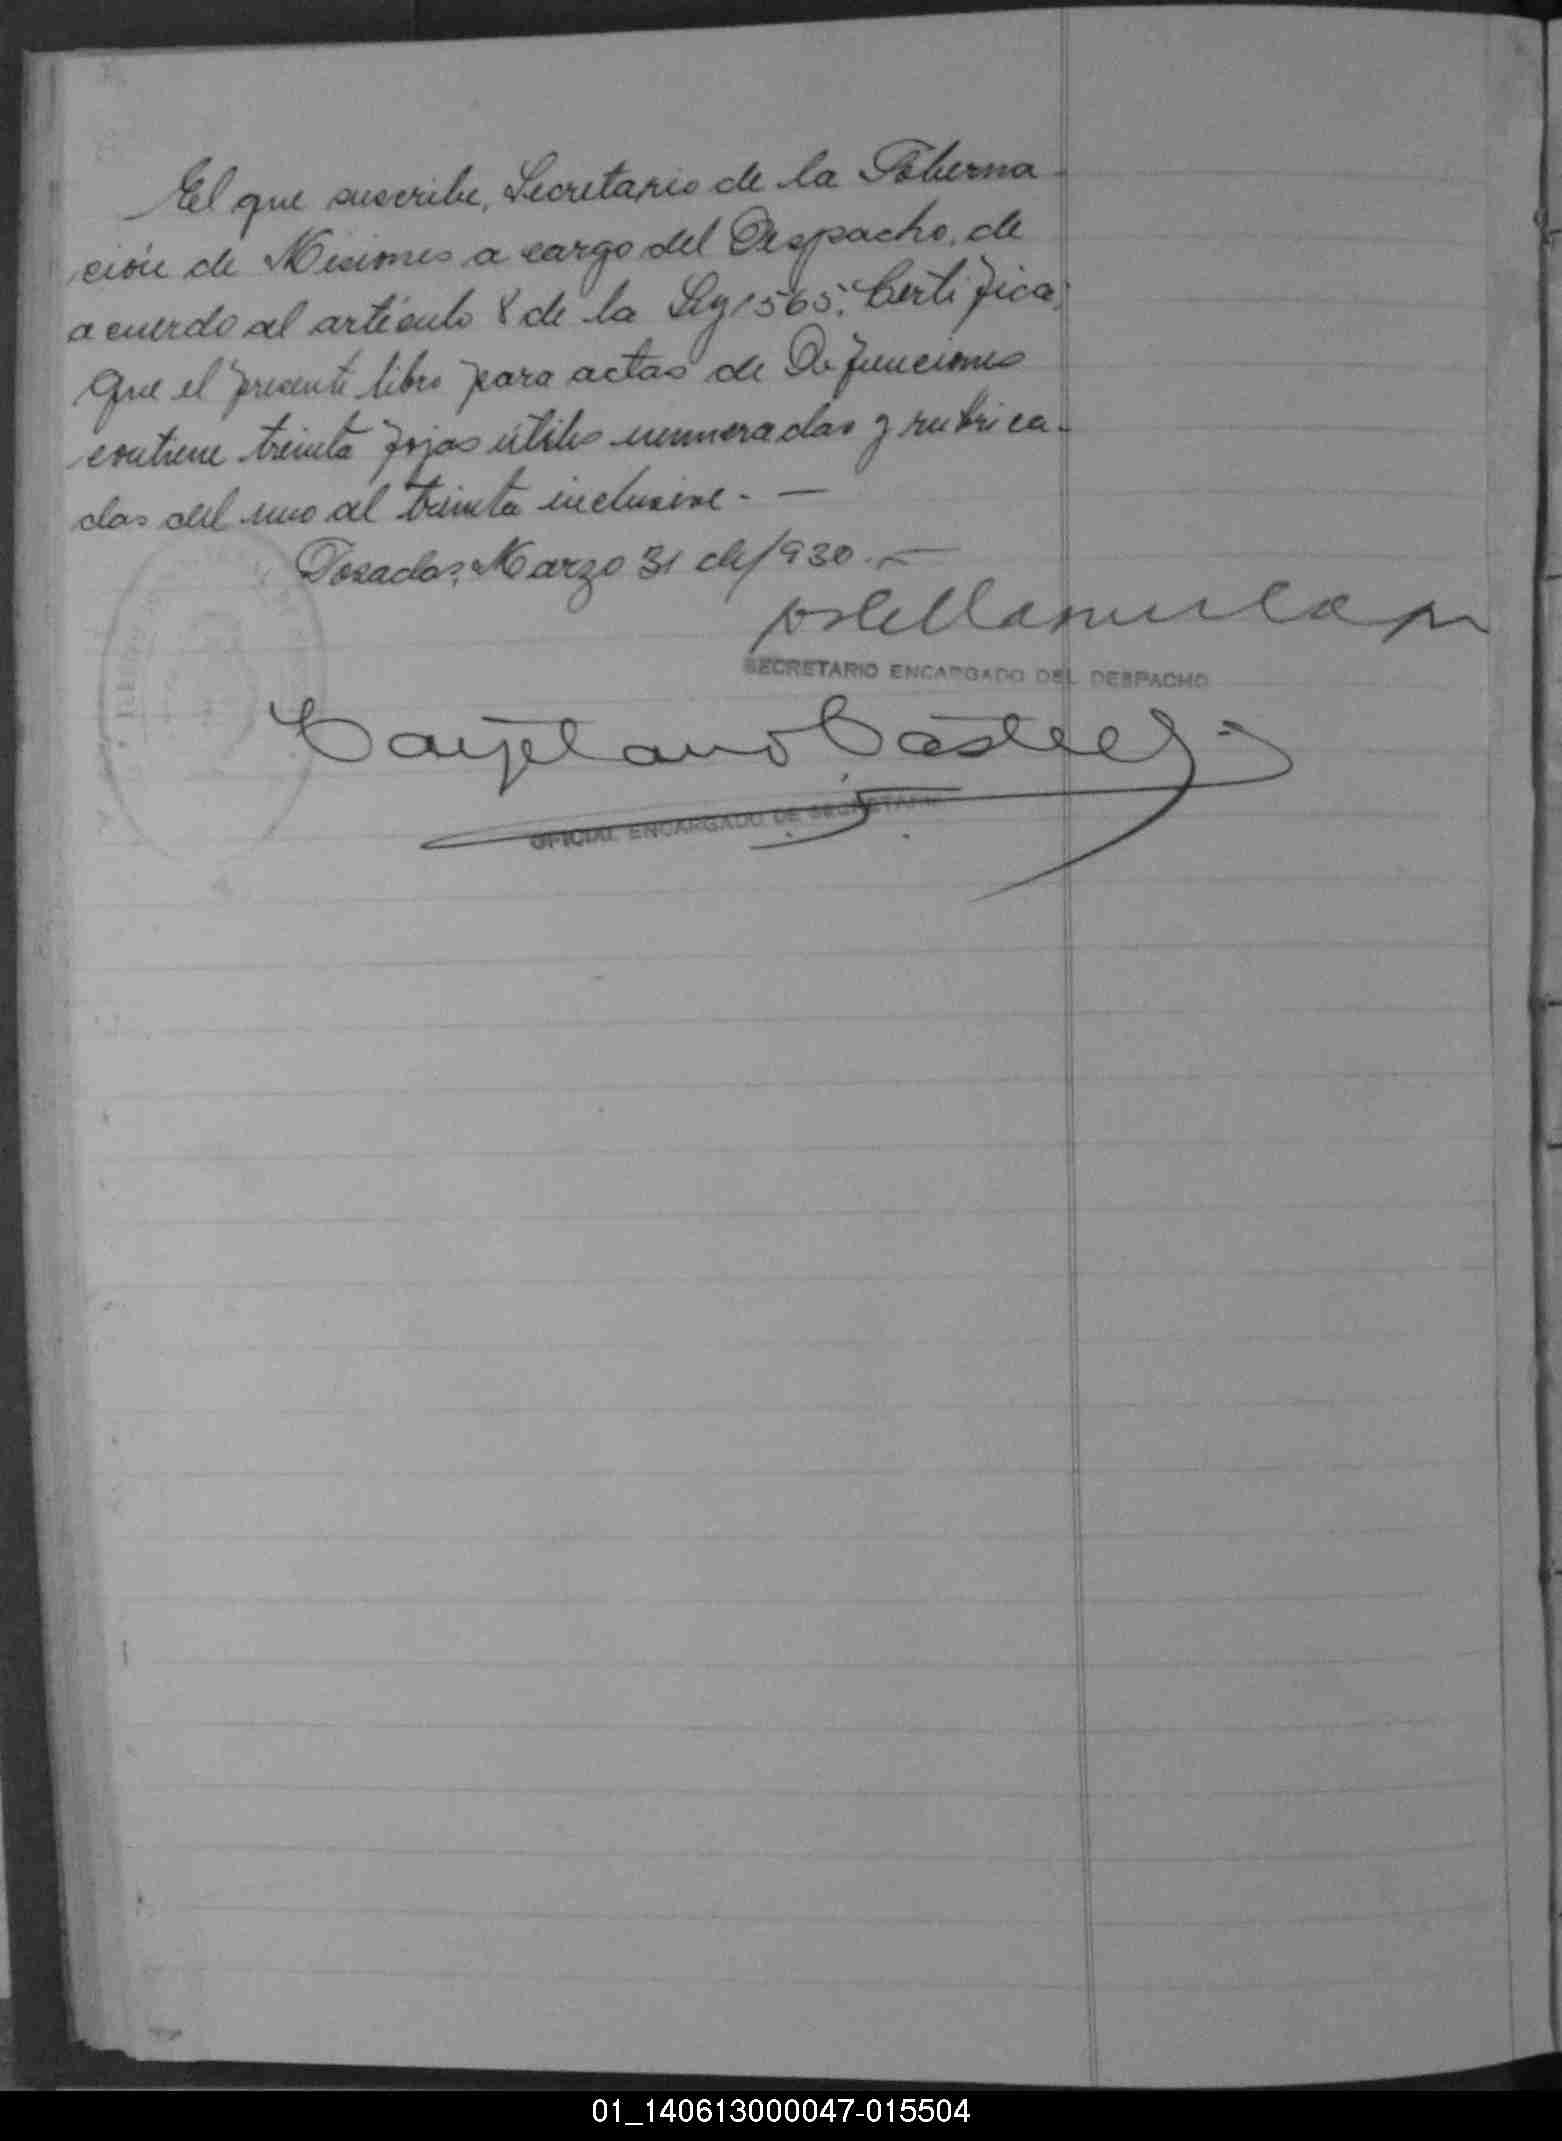 El que suscribe, Secretario de la Goberna-
ción de Misiones a cargo del Despacho, de
acuerdo al artículo 8 de la Ley 1565, Certifica:
Que el presente libro para actas de Defunciones
contiene treinta fojas útiles numeradas y rubrica-
das del uno al treinta inclusive. —
Posadas, Marzo 31 de 1930. —
SECRETARIO ENCARGADO DEL DESPACHO
Cayetano Castelli
OFICIAL ENCARGADO DE SECRETARIA
01_140613000047-015504